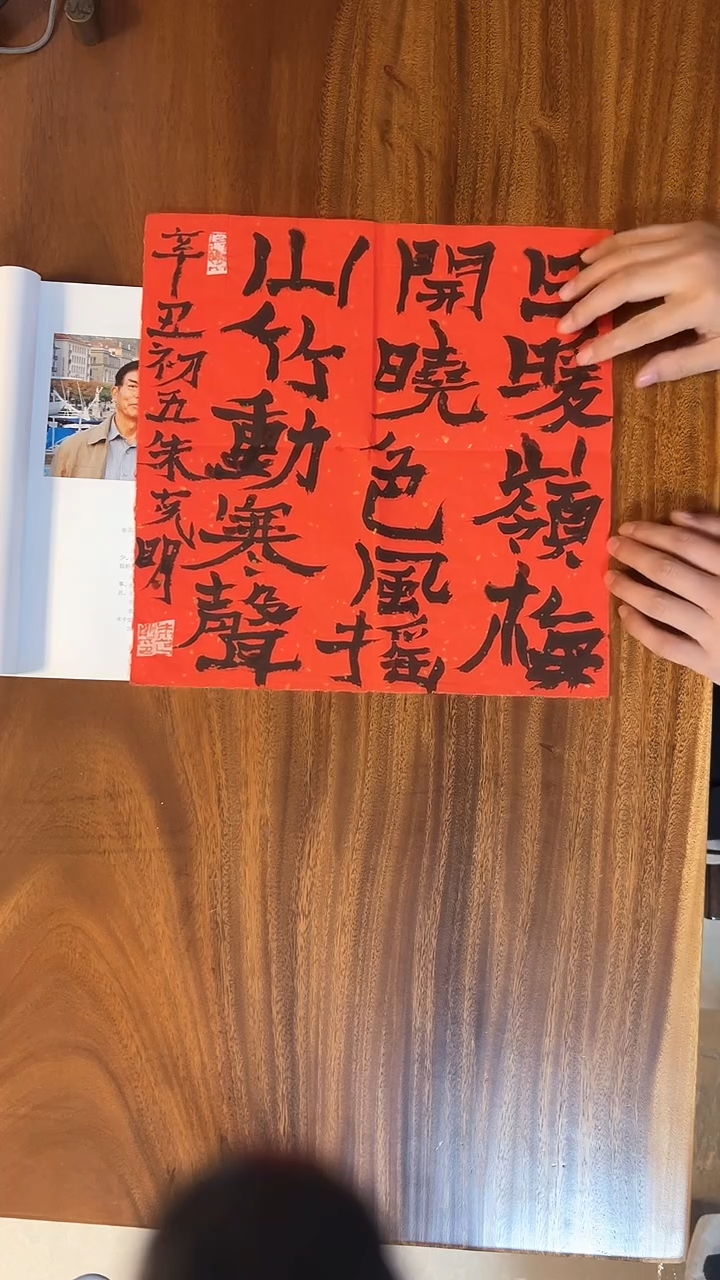 日暖嶺梅
開曉色風摇
山竹動寒聲
辛丑初五朱茂明